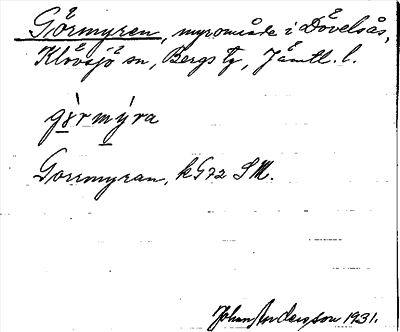 Görmyren, myrområde i Dövelsås,
Klövsjö sn, Bergs tg, Jämtl. l.
gö̀rmýra
Gorrmyran, kG72 SM.
Johan Anderson 1931.